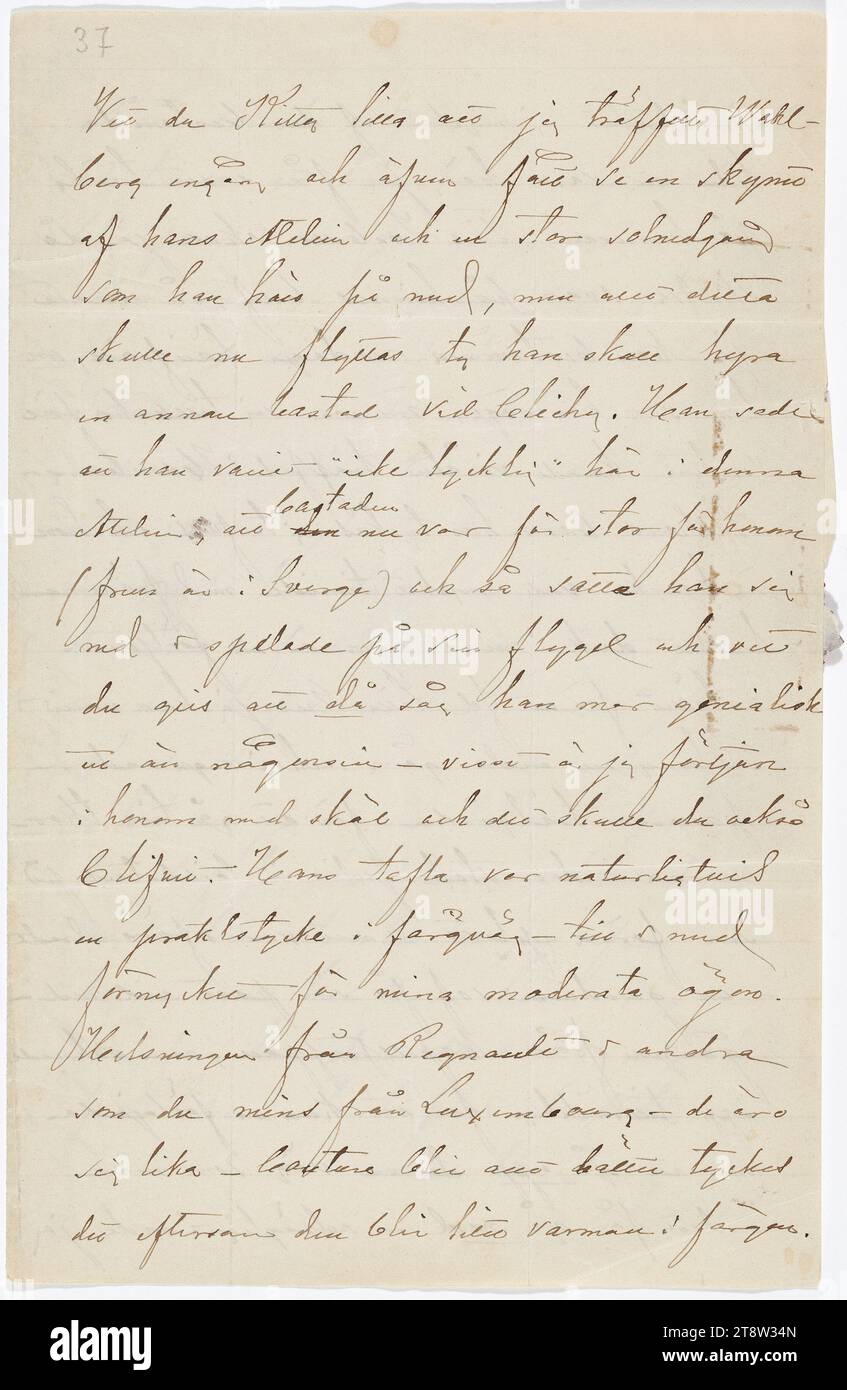 37
Vet du Kitty lilla att jag träffat Wahl-
berg engång och äfven fått se en skymt
af hans Atelier och en stor solnedgång
som han håls på med, men allt detta
skulle nu flyttas ty han skall hyra
en annan bastad vid Clichy. Han sade
att han varit "icke lycklig" här i denna
Atelier, att bastaden nu var för stor för honom
(frun är i Sverge) och så satte han sig
ned & spelade på sin flygel och vet
du gris att då såg han mer genialisk
ut än någonsin – visst är jag förtjust
i honom med skäl och det skulle du också
blifvit. Hans tafla var naturligtvis
en praktstycke i färgväg – till & med
för mina moderata ögon.
Helsningen från Regnault & andra
som du mins från Luxembourg – de äro
sig lika – Couture blir allt bättre tyckes
det eftersom den blir litet varmare i färgen.
alamy
alamy
alamy
alamy
Image ID: 2T8W34N
www.alamy.com